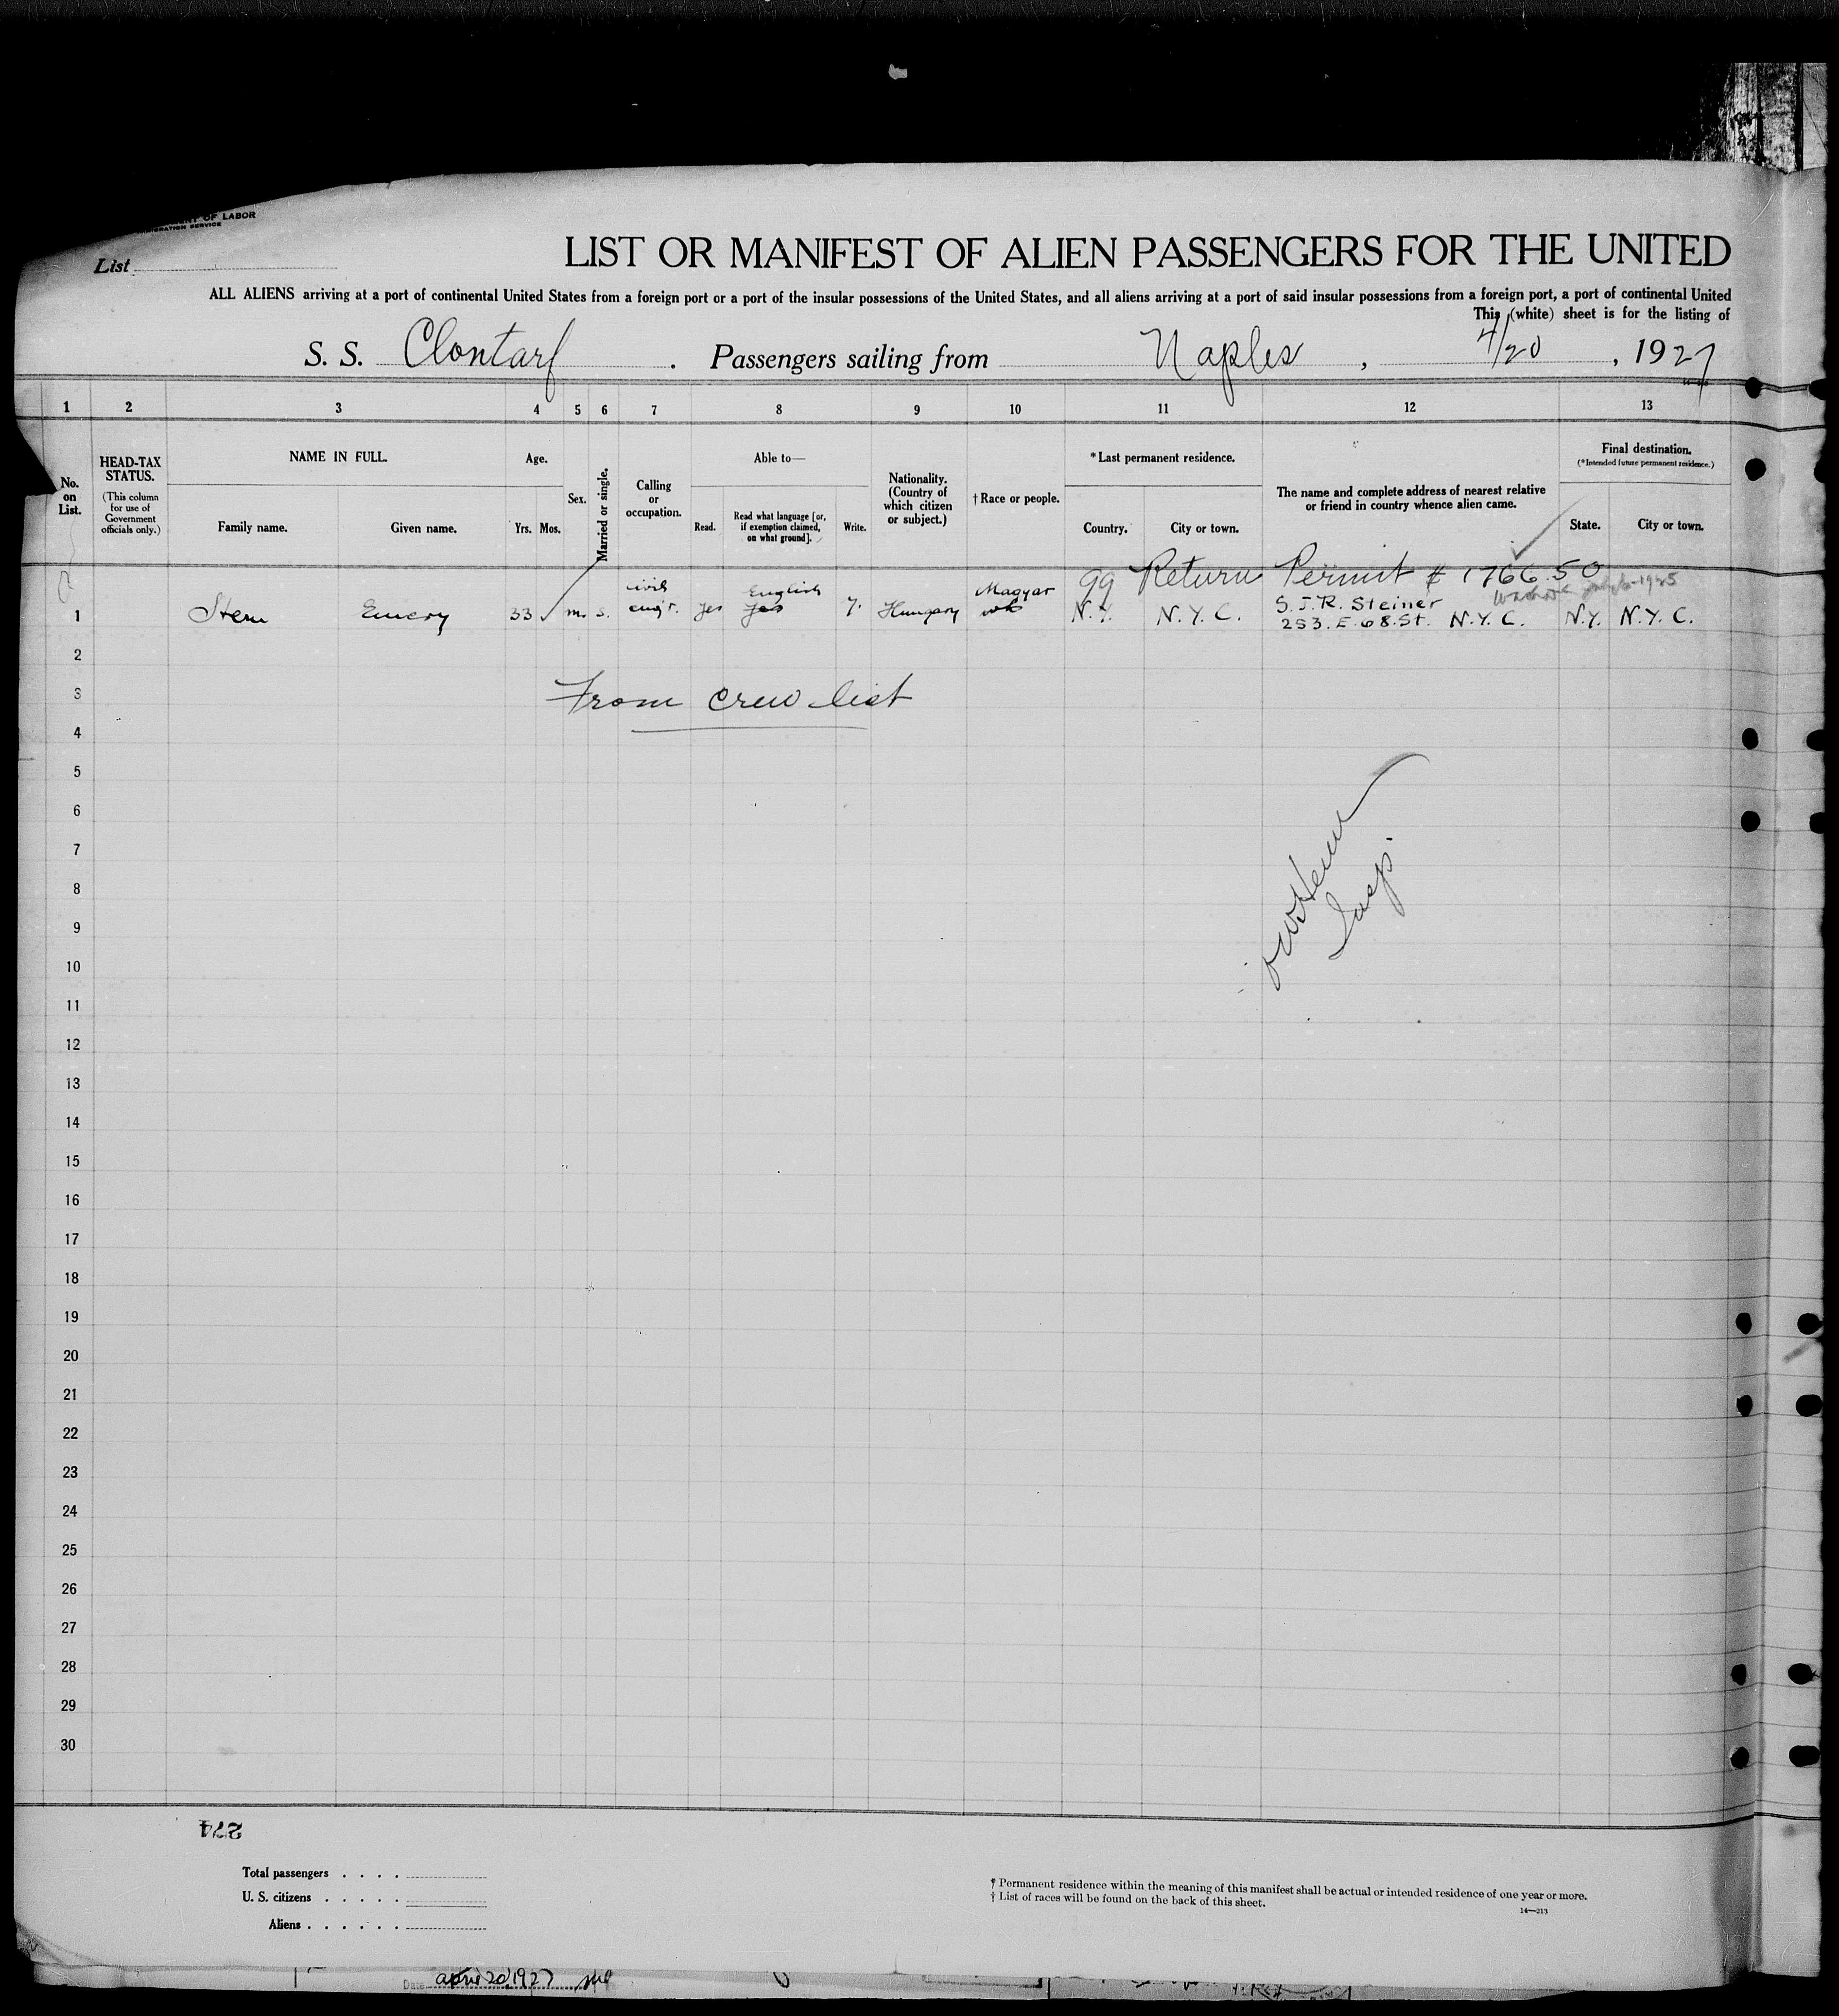 OF LABOR
IMMIGRATION SERVICE
List
LIST OR MANIFEST OF ALIEN PASSENGERS FOR THE UNITED
ALL ALIENS arriving at a port of continental United States from a foreign port or a port of the insular possessions of the United States, and all aliens arriving at a port of said insular possessions from a foreign port, a port of continental United
This (white) sheet is for the listing of
S. S. Clontarf . Passengers sailing from Naples , 4/20 , 1927
1 2 3 4 5 6 7 8 9 10 11 12 13
No. on List.
HEAD-TAX STATUS.
(This column for use of Government officials only.)
NAME IN FULL.
Family name. Given name.
Age.
Yrs. Mos.
Sex.
Married or single.
Calling or occupation.
Able to—
Read. Read what language [or, if exemption claimed, on what ground]. Write.
Nationality. (Country of which citizen or subject.)
† Race or people.
* Last permanent residence.
Country. City or town.
The name and complete address of nearest relative or friend in country whence alien came.
Final destination.
(* Intended future permanent residence.)
State. City or town.
99 Return Permit # 176650
civil English Magyar S. J. R. Steiner
1 Stern Emery 33 m. S. eng'r. yes yes y. Hungary N.Y. N.Y.C. 253. E. 68. St. N.Y.C. N.Y. N.Y.C.
2
3 From crew list
4
5
6
7
8
9
10
11
12
13
14
15
16
17
18
19
20
21
22
23
24
25
26
27
28
29
30
Insp.
274
Total passengers . . . .
U. S. citizens . . . . .
Aliens . . . . . .
* Permanent residence within the meaning of this manifest shall be actual or intended residence of one year or more.
† List of races will be found on the back of this sheet.
14—213
Date April 20, 1927